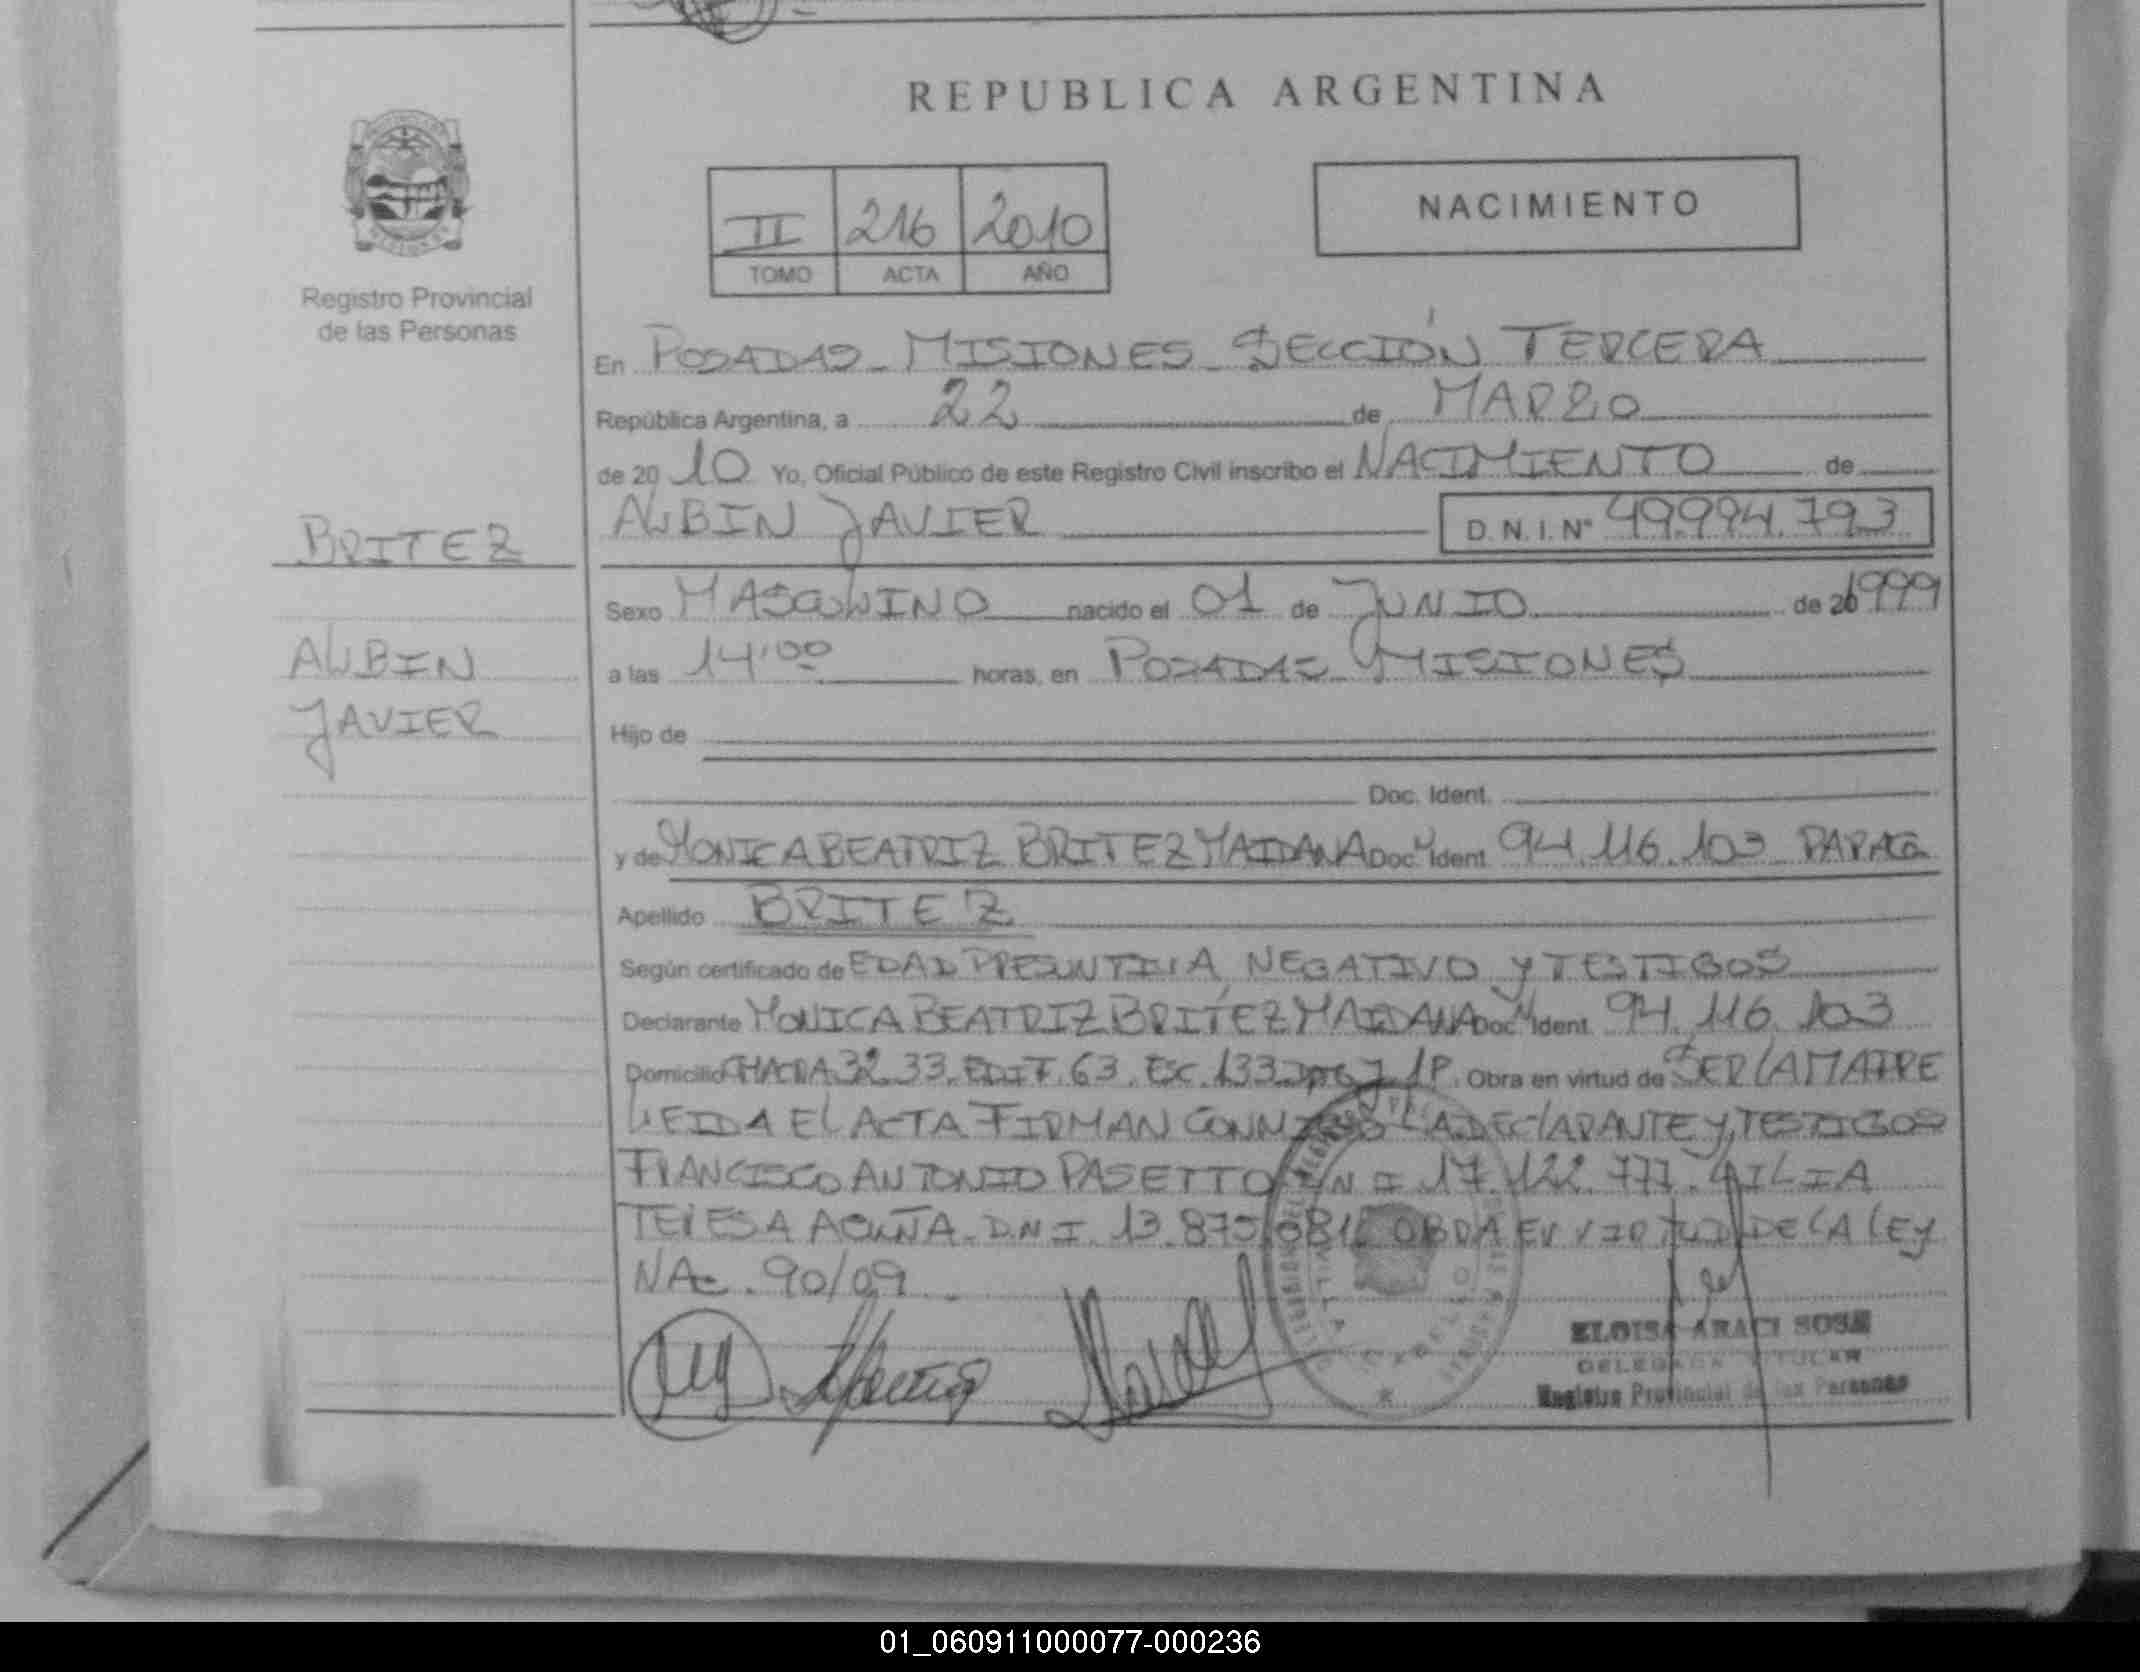 REPUBLICA ARGENTINA
II 216 2010
TOMO ACTA AÑO
NACIMIENTO
Registro Provincial
de las Personas
En POSADAS - MISIONES - SECCIÓN TERCERA
República Argentina, a 22 de MARZO
de 2010 Yo, Oficial Público de este Registro Civil inscribo el NACIMIENTO de
ALBIN JAVIER D.N.I. Nº 49.994.793
BRITEZ
ALBIN
JAVIER
Sexo MASCULINO nacido el 01 de JUNIO de 1999
a las 14:00 horas, en POSADAS MISIONES
Hijo de
Doc. Ident.
y de MONICA BEATRIZ BRITEZ MAIDANA Doc. Ident. 94.116.103
Apellido BRITEZ
Según certificado de EDAD PRESUNTIVA, NEGATIVO Y TESTIGOS
Declarante MONICA BEATRIZ BRITEZ MAIDANA Doc. Ident. 94.116.103
Domicilio CHACRA 32.33. EDIF. 63. ESC. 133 1P. Obra en virtud de SER LA MADRE
LEIDA EL ACTA FIRMAN CONMIGO LA DECLARANTE Y TESTIGOS
FRANCISCO ANTONIO PASETTO DNI 17.122.777.
TERESA ACUÑA. D.N.I. 13.875. OBRA EN VIRTUD DE LA LEY
NAC. 90/09.
ELOISA ARACI SOSA
DELEGADA TITULAR
Registro Provincial de las Personas
01_060911000077-000236